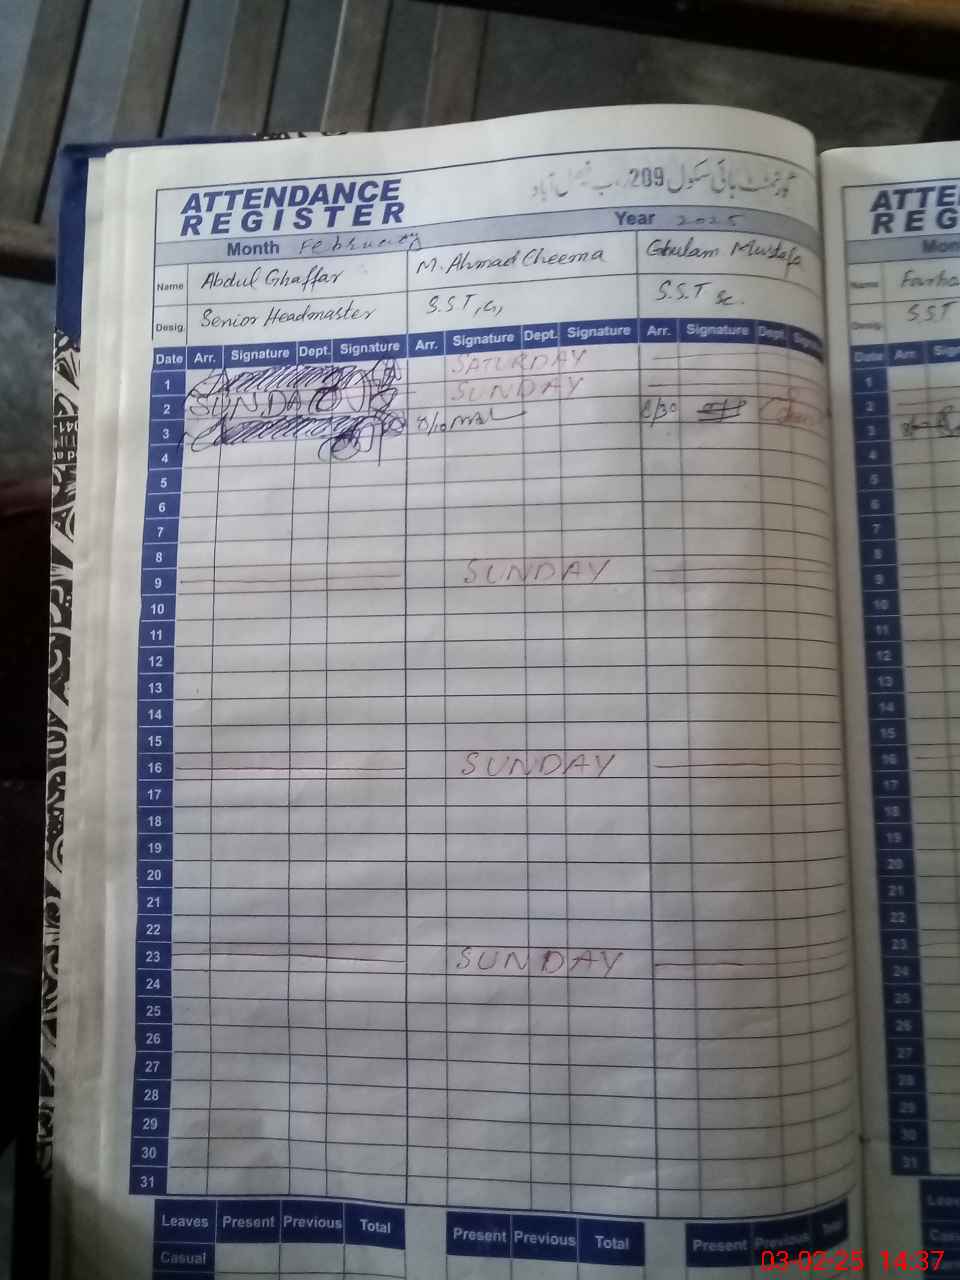 گورنمنٹ ہائی سکول 209 ر ب فیصل آباد
ATTENDANCE
REGISTER
Month February Year 2025
Name Abdul Ghaffar M. Ahmad Cheema Ghulam Mustafa
Desig. Senior Headmaster S.S.T, G, S.S.T Sc.
Date Arr. Signature Dept. Signature Arr. Signature Dept. Signature Arr. Signature Dept. Signature
1 SATURDAY
2 SUNDAY SUNDAY
3 8/10 8/30
4
5
6
7
8
9 SUNDAY
10
11
12
13
14
15
16 SUNDAY
17
18
19
20
21
22
23 SUNDAY
24
25
26
27
28
29
30
31
Leaves Present Previous Total Present Previous Total Present Previous Total
Casual
ATTE
REG
Mon
Name Farha
Desig. SST
Date Arr. Sig
1
2
3
4
5
6
7
8
9
10
11
12
13
14
15
16
17
18
19
20
21
22
23
24
25
26
27
28
29
30
31
Leave
Ca
03-02-25 14:37